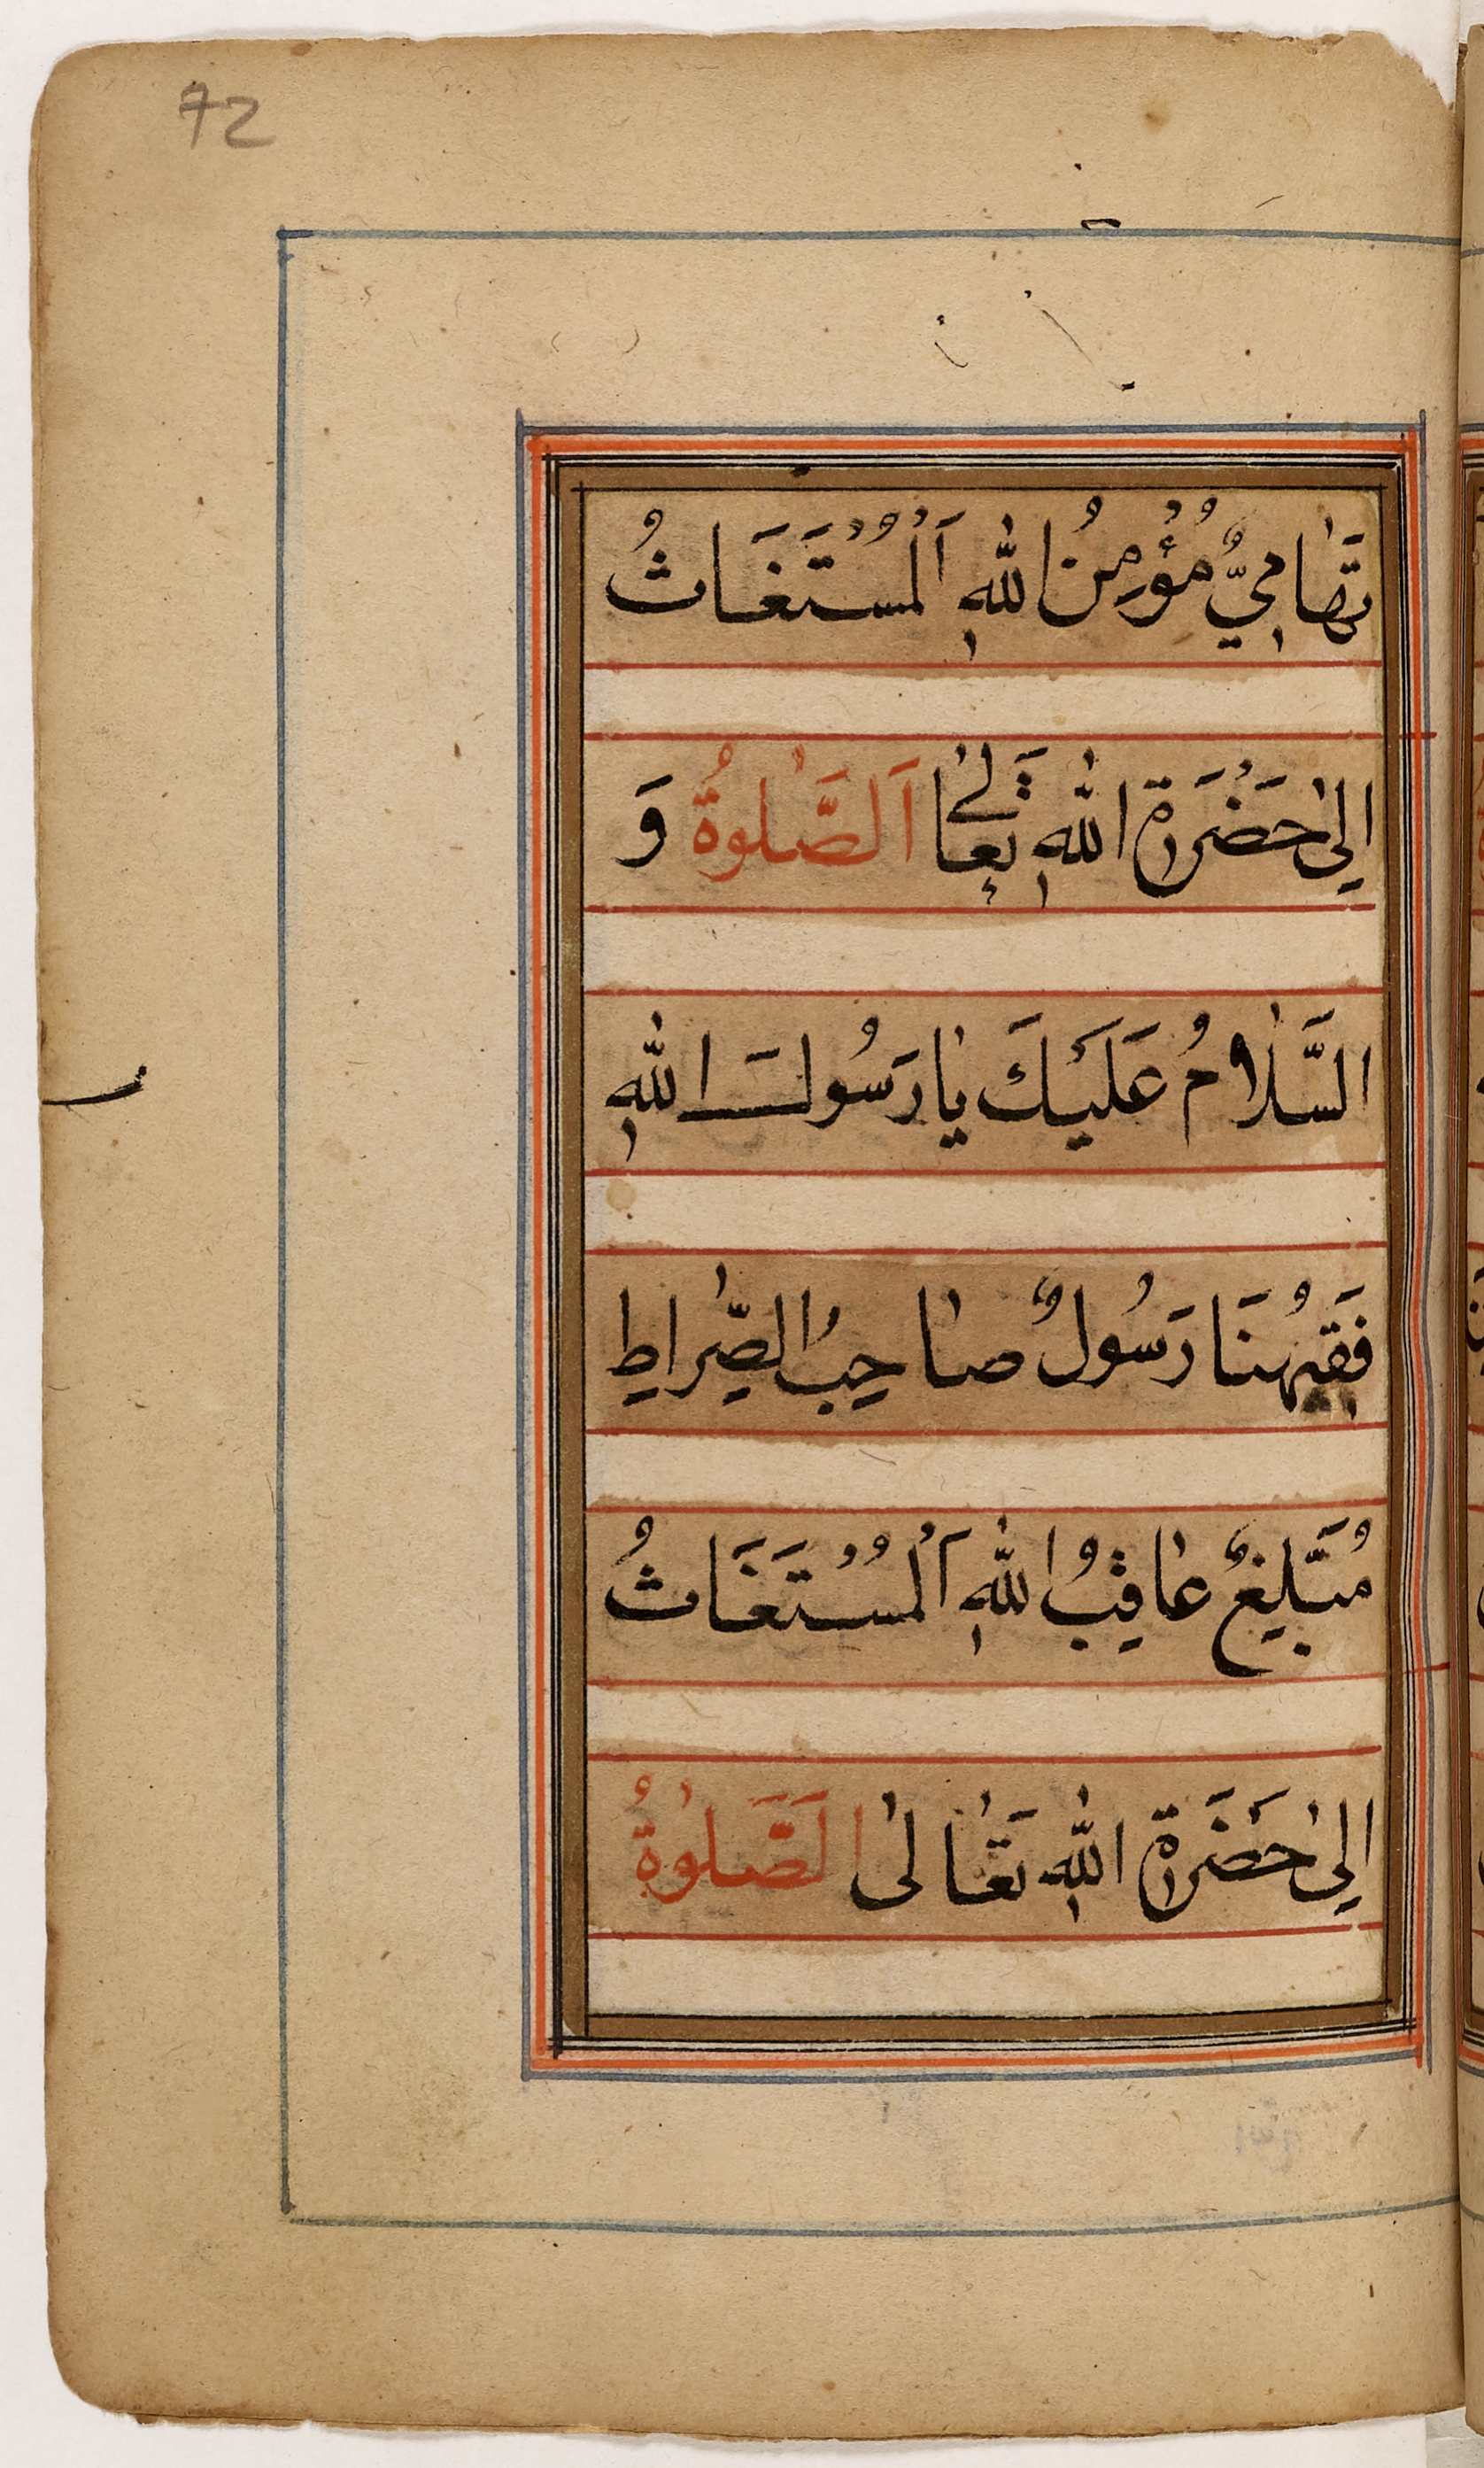 72
تِهَامِيٌّ مُؤْمِنُ اللهِ اَلْمُسْتَغَاثُ
اِلىٰ حَضْرَةِ اللهِ تَعَالىٰ اَلصَّلٰوةُ وَ
السَّلَامُ عَلَيْكَ يَا رَسُولَ اللهِ
فَقِيْهُنَا رَسُولٌ صَاحِبُ الصِّرَاطِ
مُبَلِّيغٌ عَاقِبُ اللهِ اَلْمُسْتَغَاثُ
اِلىٰ حَضَرَةِ اللهِ تَعَالىٰ الَصَّلٰوةُ